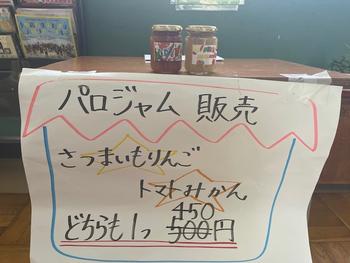 パロジャム 販売
さつまいもりんご
トマトみかん
450
どちらも1つ 500円